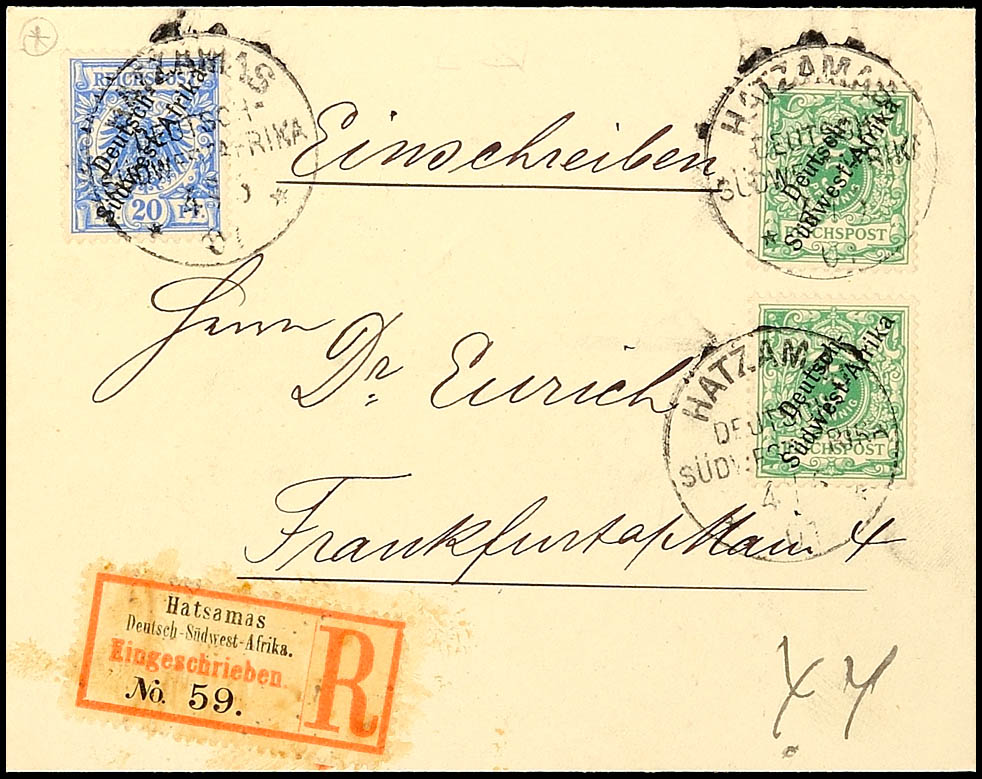 REICHSPOST
20 PF.
Deutsch-
Südwest-Afrika
HATZAMAS
DEUTSCH-
SÜDWESTAFRIKA
Einschreiben
HATZAMAS
DEUTSCH-
SÜDWESTAFRIKA
Deutsch-
Südwest-Afrika
REICHSPOST
Herrn
Dr. Eurich
HATZAM
DEUTSCH
SÜDWESTAFRIKA
4
01
Deutsch-
Südwest-Afrika
REICHSPOST
Frankfurt a/Main 4
Hatsamas
Deutsch-Südwest-Afrika.
Eingeschrieben
No. 59.
R